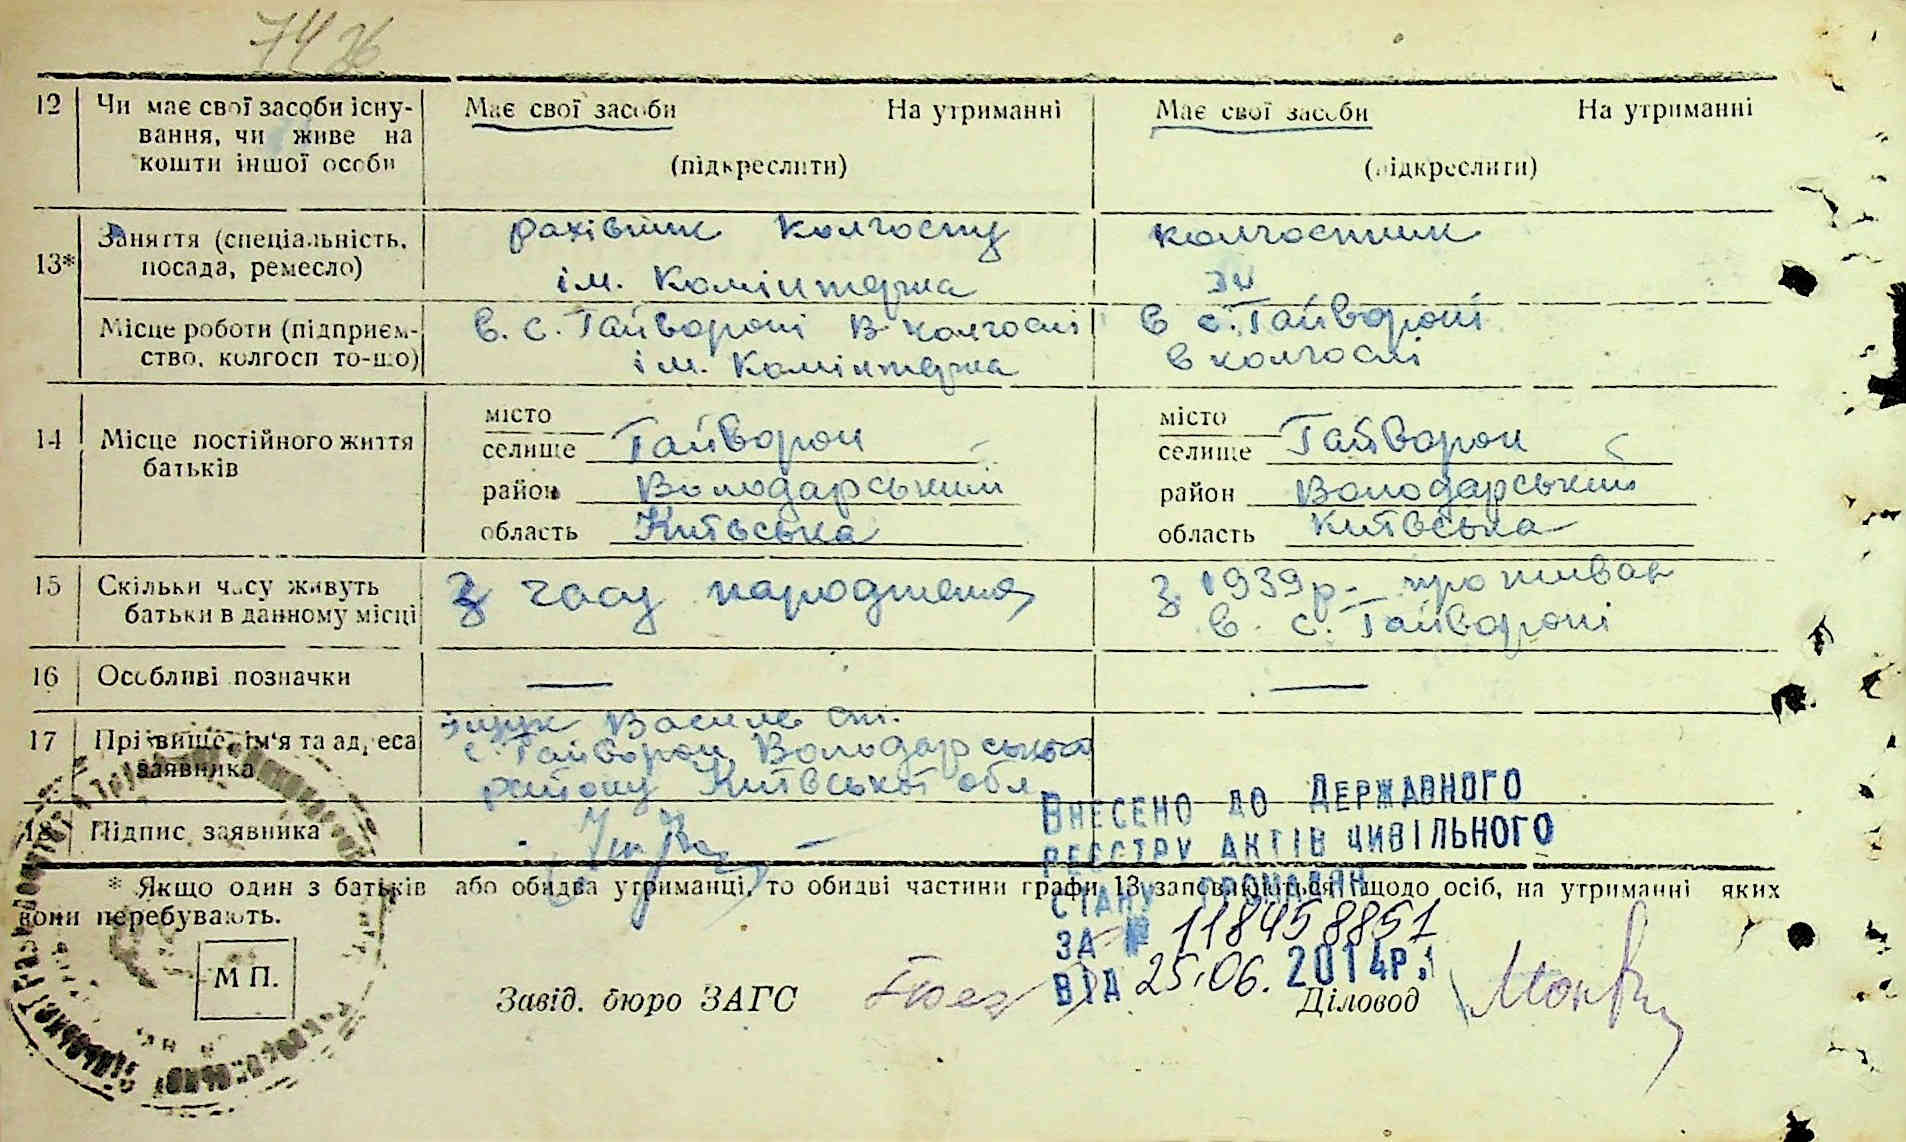 7426
12 Чи має свої засоби існу- Має свої засоби На утриманні Має свої засоби На утриманні
вання, чи живе на
кошти іншої особи (підкреслити) (підкреслити)
13* Заняття (спеціальність, рахівник колгоспу колгоспник
посада, ремесло) ім. Комінтерна
Місце роботи (підприєм- в. с. Гайвороні в колгоспі в с. Гайвороні
ство, колгосп то-що) ім. Комінтерна в колгоспі
14 Місце постійного життя батьків
місто
селище Гайворон
район Володарський
область Київська
місто
селище Гайворон
район Володарський
область Київська
15 Скільки часу живуть З часу народження З 1939 р. проживає
батьки в данному місці в с. Гайвороні
16 Особливі позначки — —
17 Прізвище, ім'я та адреса Василь
заявника с. Гайворон Володарського
району Київської обл.
18 Підпис заявника
* Якщо один з батьків або обидва утриманці, то обидві частини графи 13 заповнюються щодо осіб, на утриманні яких
вони перебувають.
М П.
Завід. бюро ЗАГС Діловод
Внесено до Державного
реєстру актів цивільного
стану громадян
за № 11845 8851
від 25.06. 2014р.